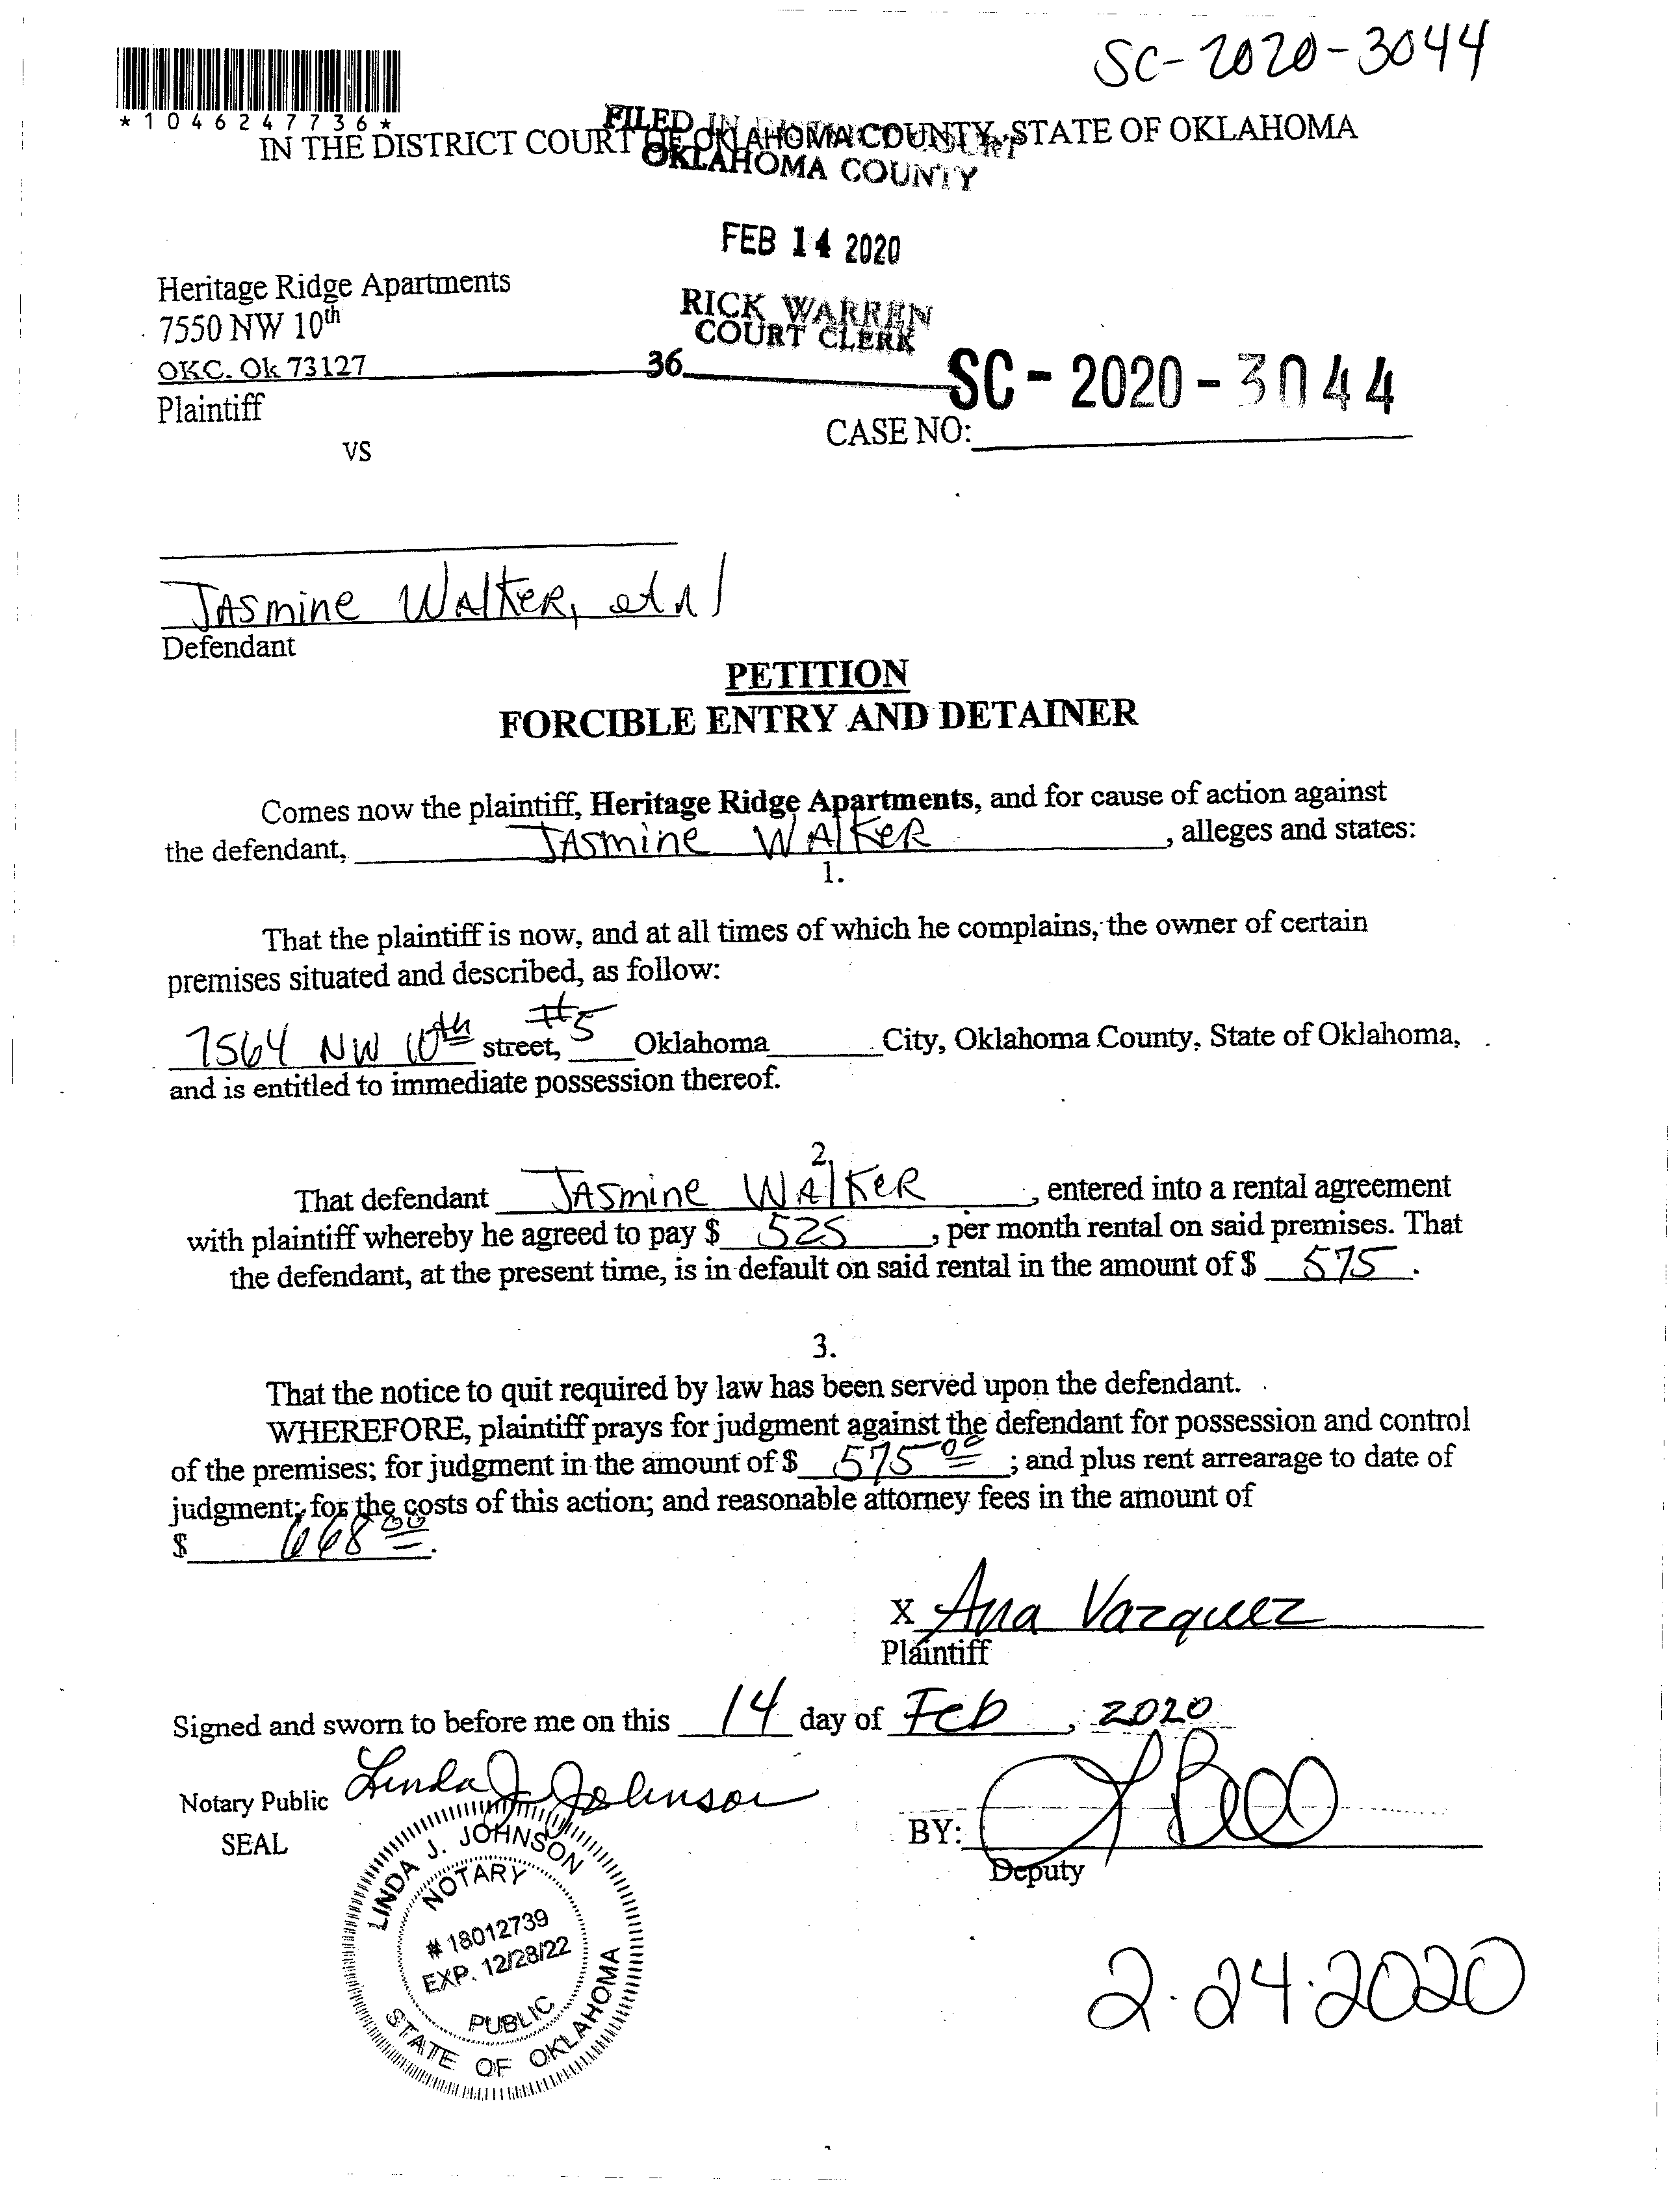 SC-2020-3044
*1046247736*
IN THE DISTRICT COURT OF OKLAHOMA COUNTY, STATE OF OKLAHOMA
FILED IN DISTRICT COURT
OKLAHOMA COUNTY
FEB 14 2020
RICK WARREN
COURT CLERK
36
Heritage Ridge Apartments
7550 NW 10th
OKC. Ok 73127
Plaintiff
VS
SC-2020-3044
CASE NO:
JASmine WAlKER, etAl
Defendant
PETITION
FORCIBLE ENTRY AND DETAINER
Comes now the plaintiff, Heritage Ridge Apartments, and for cause of action against
the defendant, JASmine WAlKeR, alleges and states:
1.
That the plaintiff is now, and at all times of which he complains, the owner of certain
premises situated and described, as follow:
7564 NW 10th street, #5 Oklahoma City, Oklahoma County, State of Oklahoma,
and is entitled to immediate possession thereof.
2.
That defendant JASmine WAlKeR, entered into a rental agreement
with plaintiff whereby he agreed to pay $ 525, per month rental on said premises. That
the defendant, at the present time, is in default on said rental in the amount of $ 575.
3.
That the notice to quit required by law has been served upon the defendant.
WHEREFORE, plaintiff prays for judgment against the defendant for possession and control
of the premises; for judgment in the amount of $ 575 00; and plus rent arrearage to date of
judgment; for the costs of this action; and reasonable attorney fees in the amount of
$ 668 00.
X Ana Vazquez
Plaintiff
Signed and sworn to before me on this 14 day of Feb, 2020
Notary Public Linda J Johnson
SEAL
BY:
Deputy
LINDA J. JOHNSON
NOTARY
# 18012739
EXP. 12/28/22
PUBLIC
STATE OF OKLAHOMA
2.24.2020